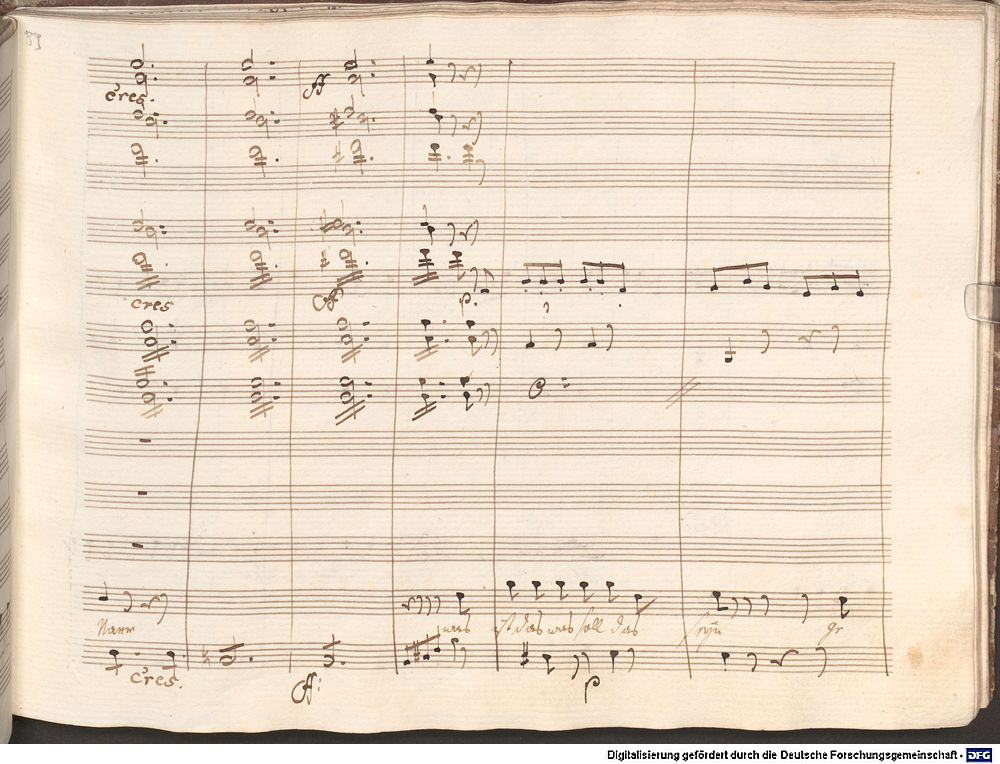 89
cres.
ff
cres
ff
p.
Narr was ist das was soll das seyn ge
cres.
ff:
p
Digitalisierung gefördert durch die Deutsche Forschungsgemeinschaft - DFG